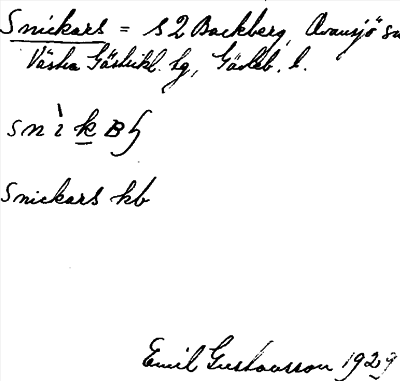 Snickars = s 2 Backberg, Ovansjö sn
Västra Gästrikl. tg, Gävleb. l.
Snickars kb
Emil Gustavsson 1929